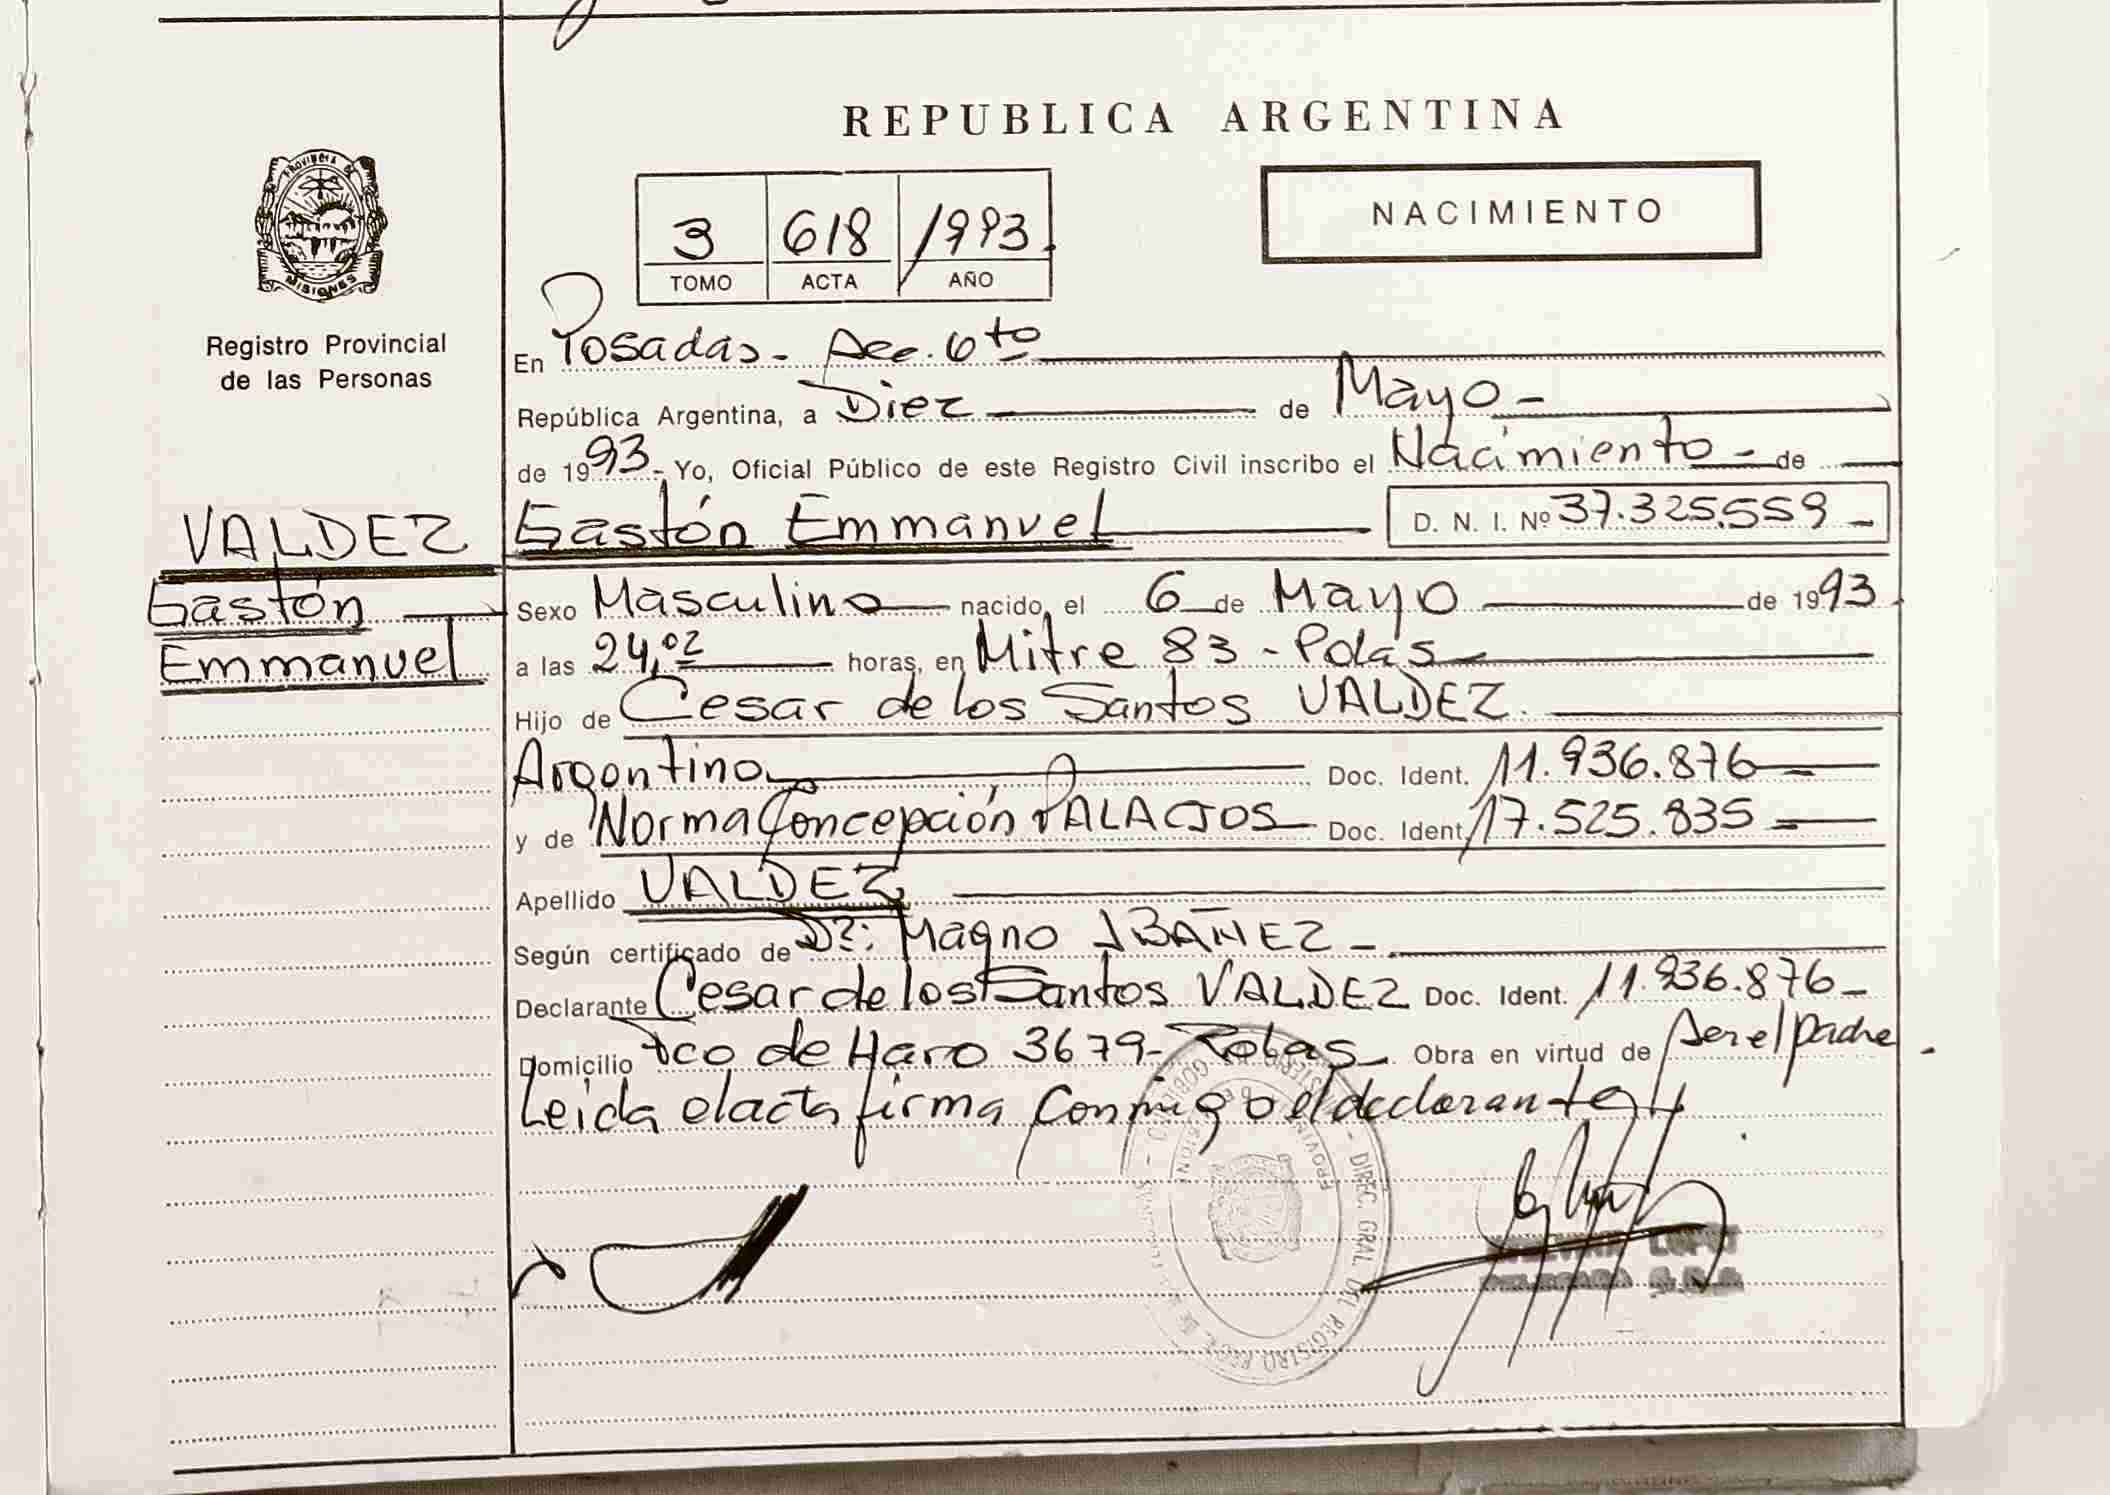 REPUBLICA ARGENTINA
PROVINCIA DE MISIONES
Registro Provincial
de las Personas
3 618 1993
TOMO ACTA AÑO
NACIMIENTO
En Posadas - Sec. 6to
República Argentina, a Diez de Mayo -
de 1993 - Yo, Oficial Público de este Registro Civil inscribo el Nacimiento - de
VALDEZ
Gastón
Emmanuel
Gastón Emmanuel D. N. I. Nº 37.325.559 -
Sexo Masculino nacido, el 6 de Mayo de 1993
a las 24,02 horas, en Mitre 83 - Pdas
Hijo de Cesar de los Santos VALDEZ.
Argentino Doc. Ident. 11.936.876
y de Norma Concepción PALACIOS Doc. Ident. 17.525.835
Apellido VALDEZ
Según certificado de Dr: Magno IBAÑEZ -
Declarante Cesar de los Santos VALDEZ Doc. Ident. 11.936.876 -
Domicilio Fco de Haro 3679 - Pdas Obra en virtud de ser el padre
Leida el acta firma conmigo el declarante
DIREC. GRAL. DEL REGISTRO
LOPEZ